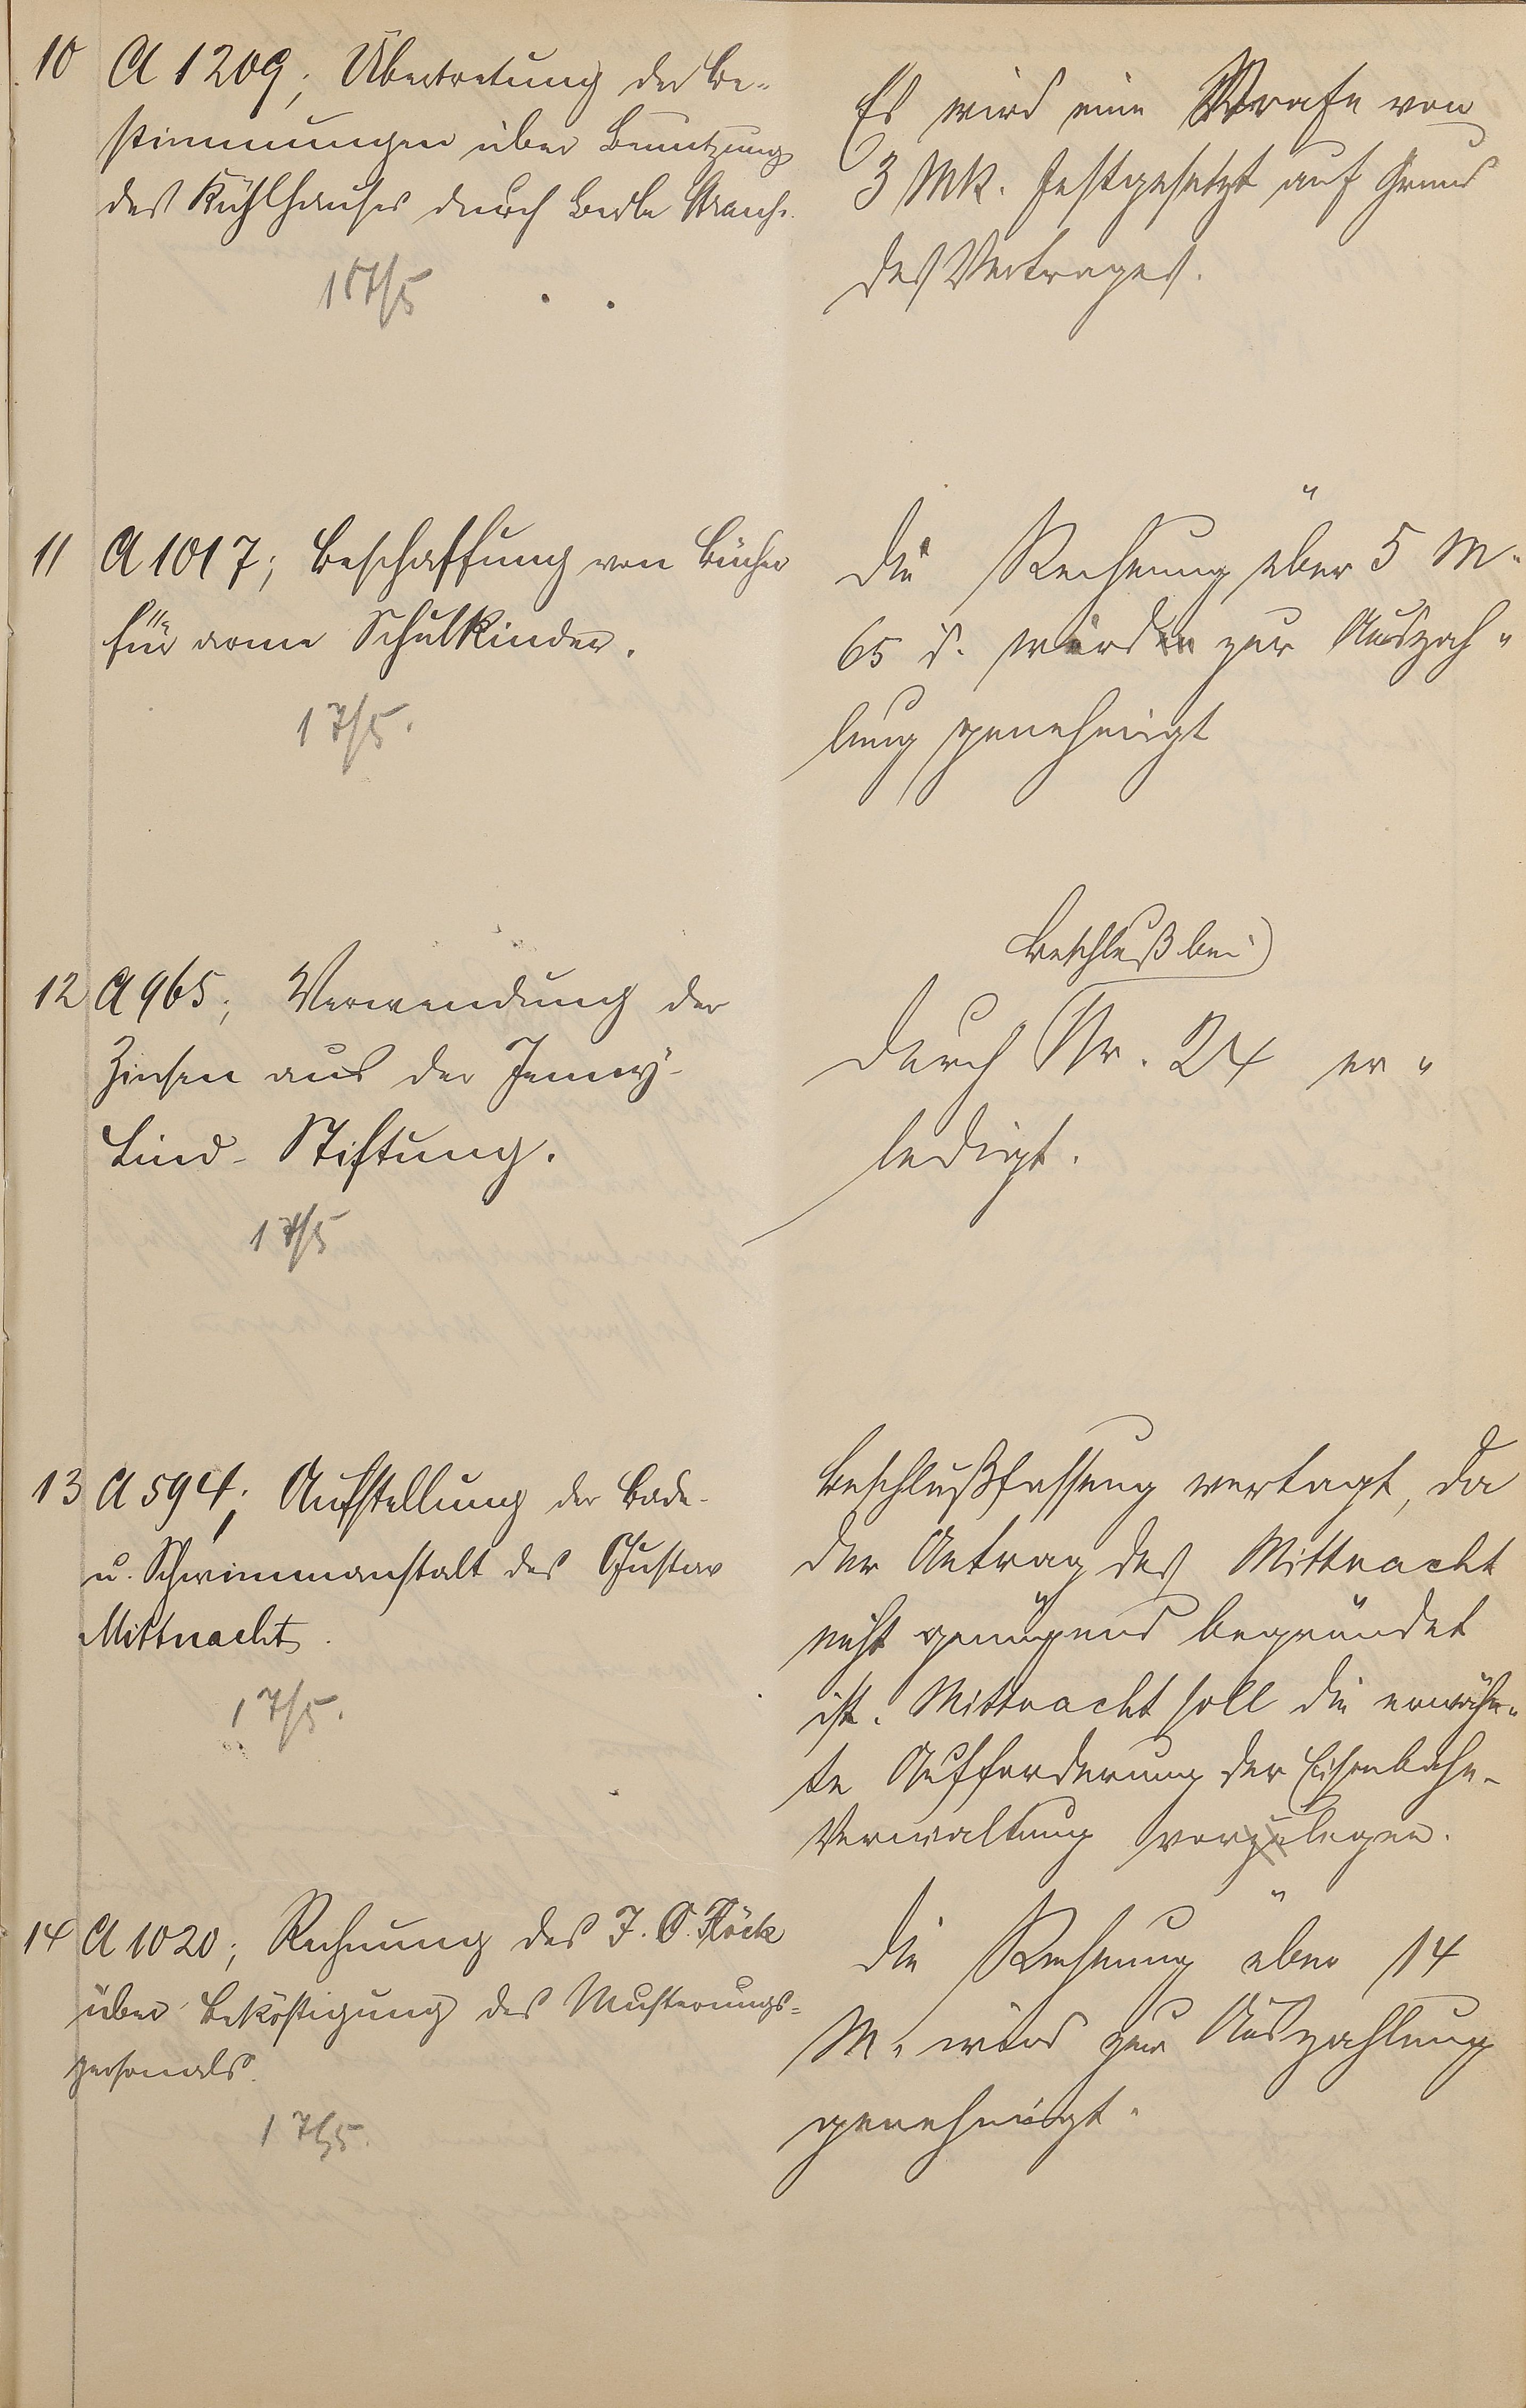 10 A 1209; Übertretung der Be-
stimmungen über Benutzung
des Kühlhauses durch
187/5
Es wird eine Strafe von
3 Mk. festgesetzt auf Grund
des Vertrages.
11 A 1017; Beschaffung von Bücher
für arme Schulkinder.
17/5.
Die Rechnung über 5 M.
65 d. wird zur Auszah-
lung genehmigt
12 A 965; Verwendung der
Zinsen aus der Jenny-
Lind-Stiftung.
17/5
Beschluß bei
durch Nr. 24 er-
ledigt.
13 A 594; Aufstellung der Bade-
u. Schwimmanstalt des Gustav
Mittnacht.
17/5.
Beschlußfassung vertagt, da
der Antrag des Mittnacht
nicht genügend begründet
ist. Mittnacht soll die erwähn-
te Aufforderung der Eisenbahn-
Verwaltung vorzulegen.
14 A 1020; Rechnung des J. O. Flöck
über Beköstigung des Musterungs-
personals.
17/5.
Die Rechnung über 14
M. wird zur Auszahlung
genehmigt.